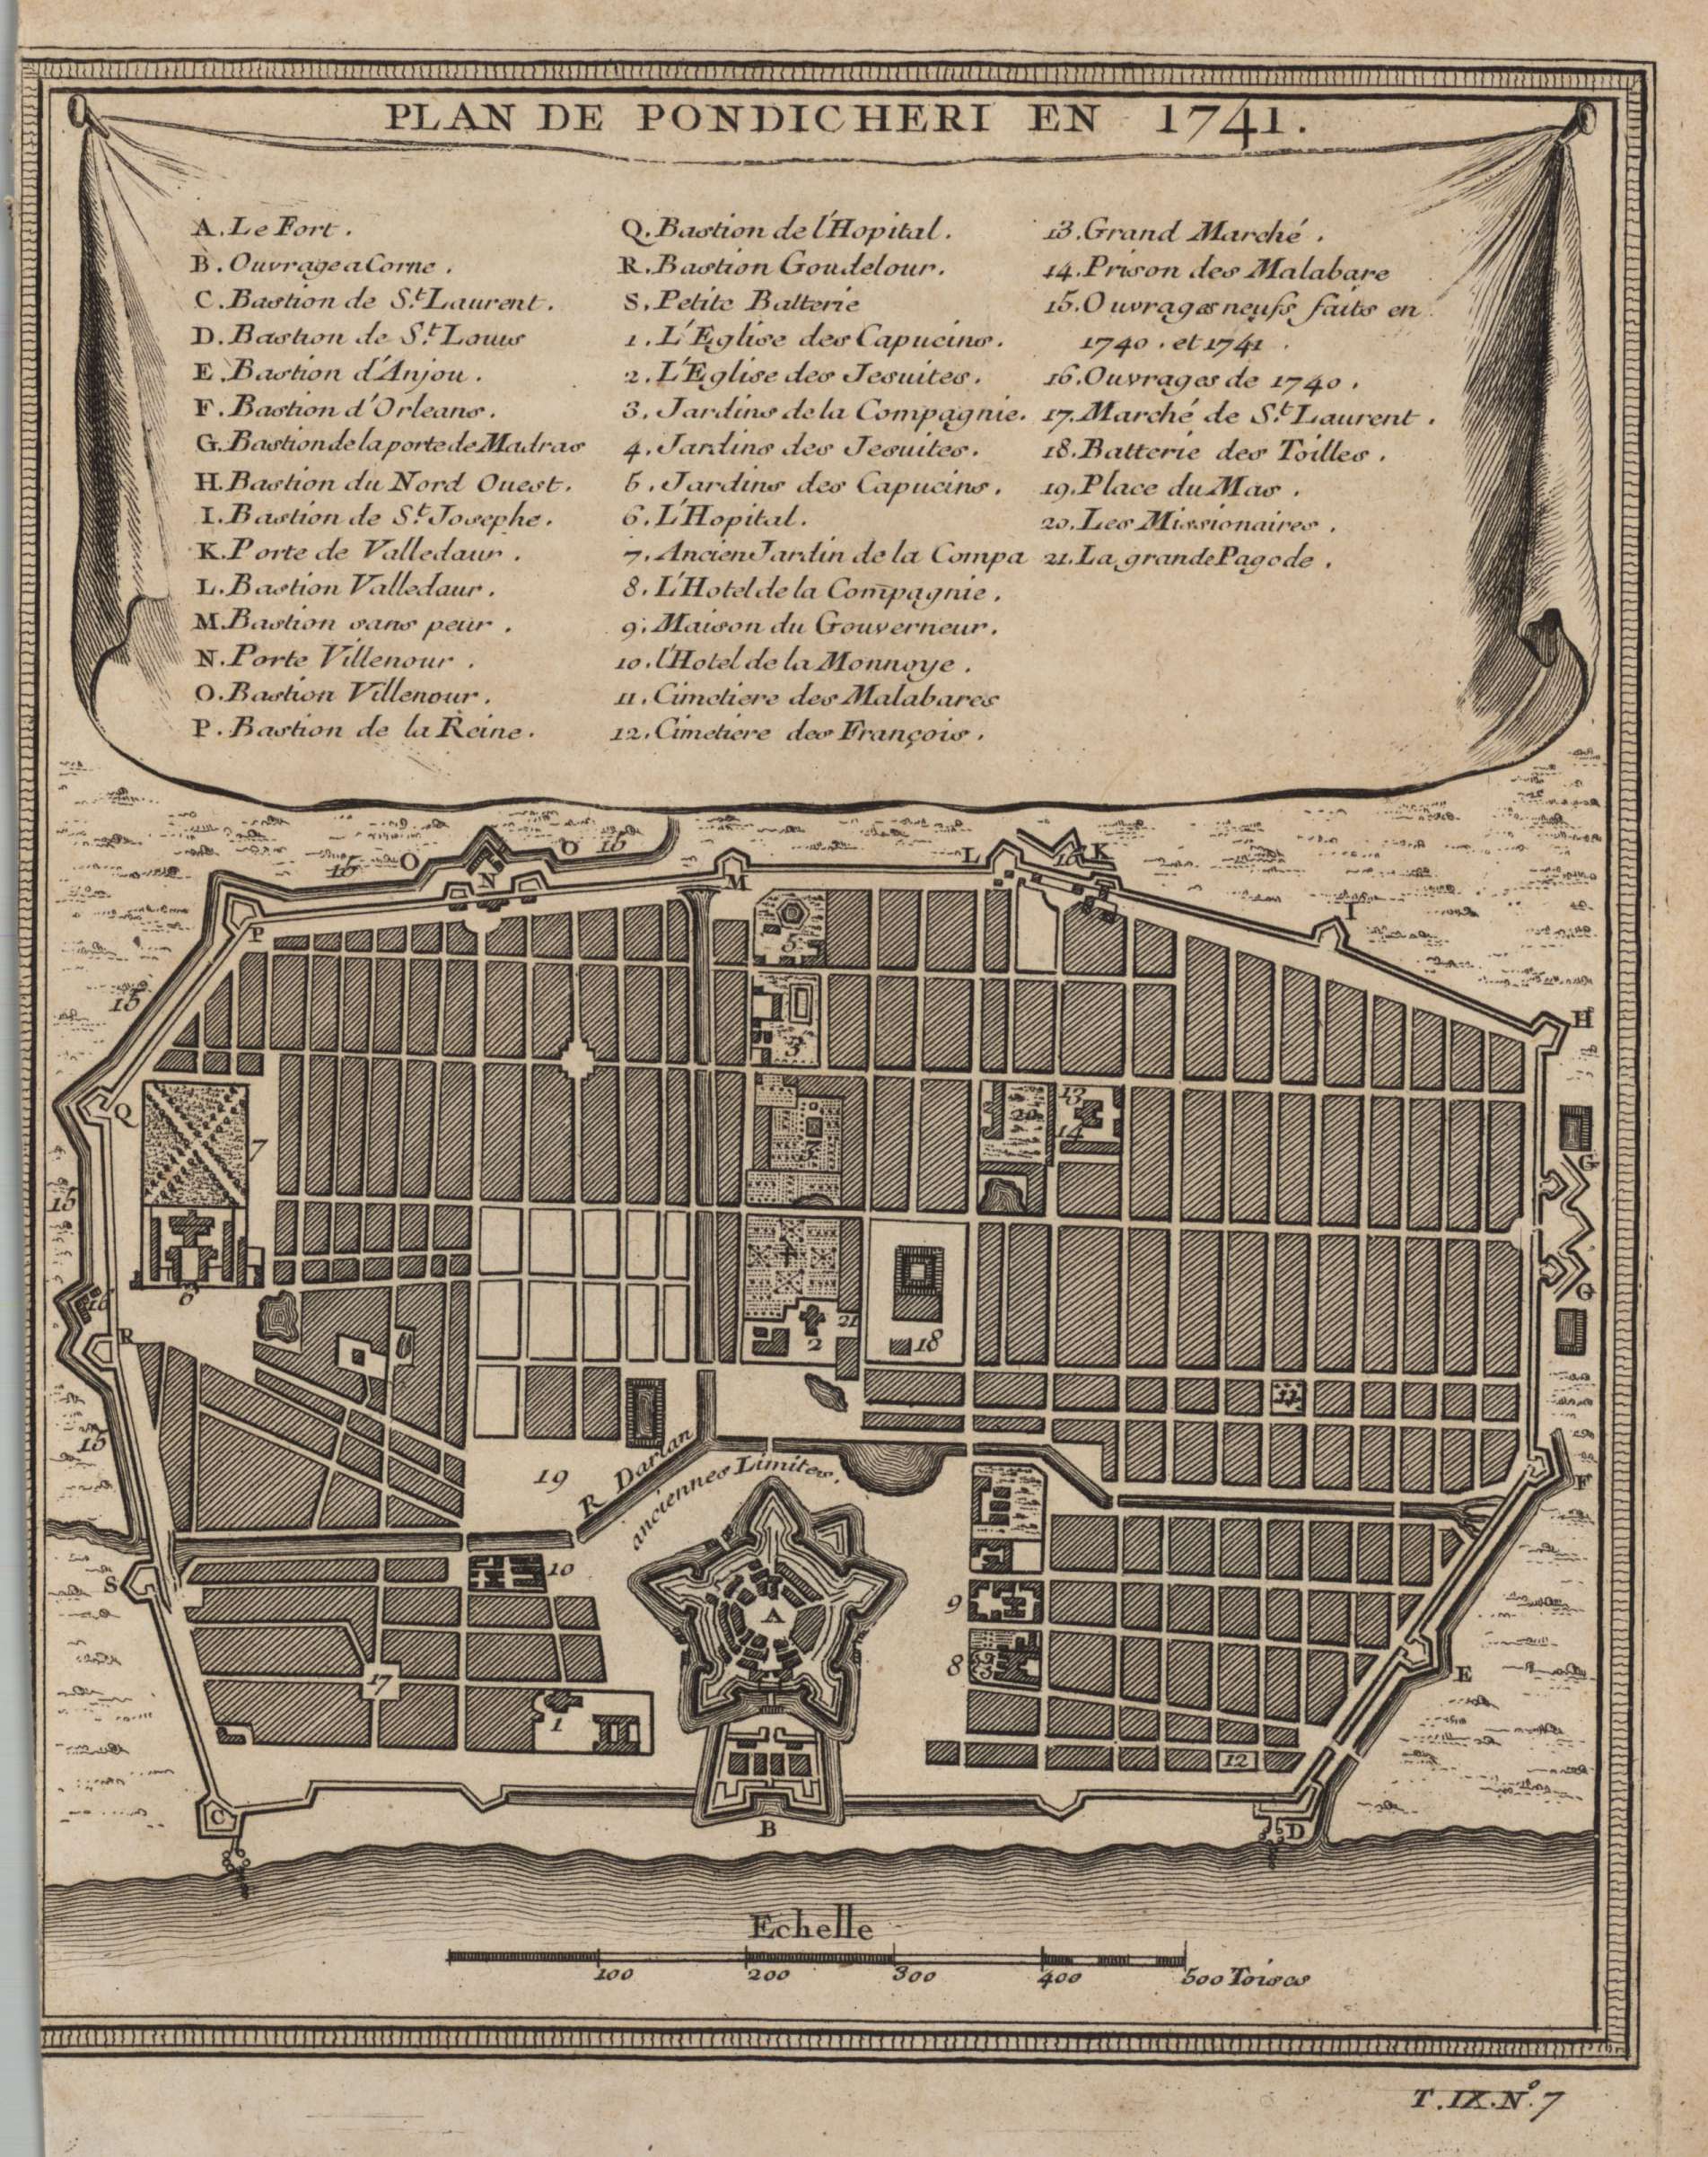 PLAN DE PONDICHERI EN 1741.
A. Le Fort.
B. Ouvrage a Corne.
C. Bastion de S.t Laurent.
D. Bastion de S.t Louis
E. Bastion d'Anjou.
F. Bastion d'Orleans.
G. Bastion de la porte de Madras
H. Bastion du Nord Ouest.
I. Bastion de S.t Josephe.
K. Porte de Valledaur.
L. Bastion Valledaur.
M. Bastion sans peur.
N. Porte Villenour.
O. Bastion Villenour.
P. Bastion de la Reine.
Q. Bastion de l'Hopital.
R. Bastion Goudelour.
S. Petite Batterie
1. L'Eglise des Capucins.
2. L'Eglise des Jesuites.
3. Jardins de la Compagnie.
4. Jardins des Jesuites.
5. Jardins des Capucins.
6. L'Hopital.
7. Ancien Jardin de la Compa
8. L'Hotel de la Compagnie.
9. Maison du Gouverneur.
10. l'Hotel de la Monnoye.
11. Cimetiere des Malabares
12. Cimetiere des François.
13. Grand Marché.
14. Prison des Malabare
15. Ouvrages neufs faits en
1740. et 1741.
16. Ouvrages de 1740.
17. Marché de S.t Laurent.
18. Batterie des Toilles.
19. Place du Mas.
20. Les Missionaires.
21. La grande Pagode.
15 O N O 15 M L 16 K
I
P
5
15
3
H
Q
7
20 13
14
G
15
6
16
G
R
2 21 18
11
15
19
R Darian
anciennes Limites.
F
S
10
A
9
8
E
17
1
12
C
B
D
Echelle
100 200 300 400 500 Toises
T. IX. N.o 7